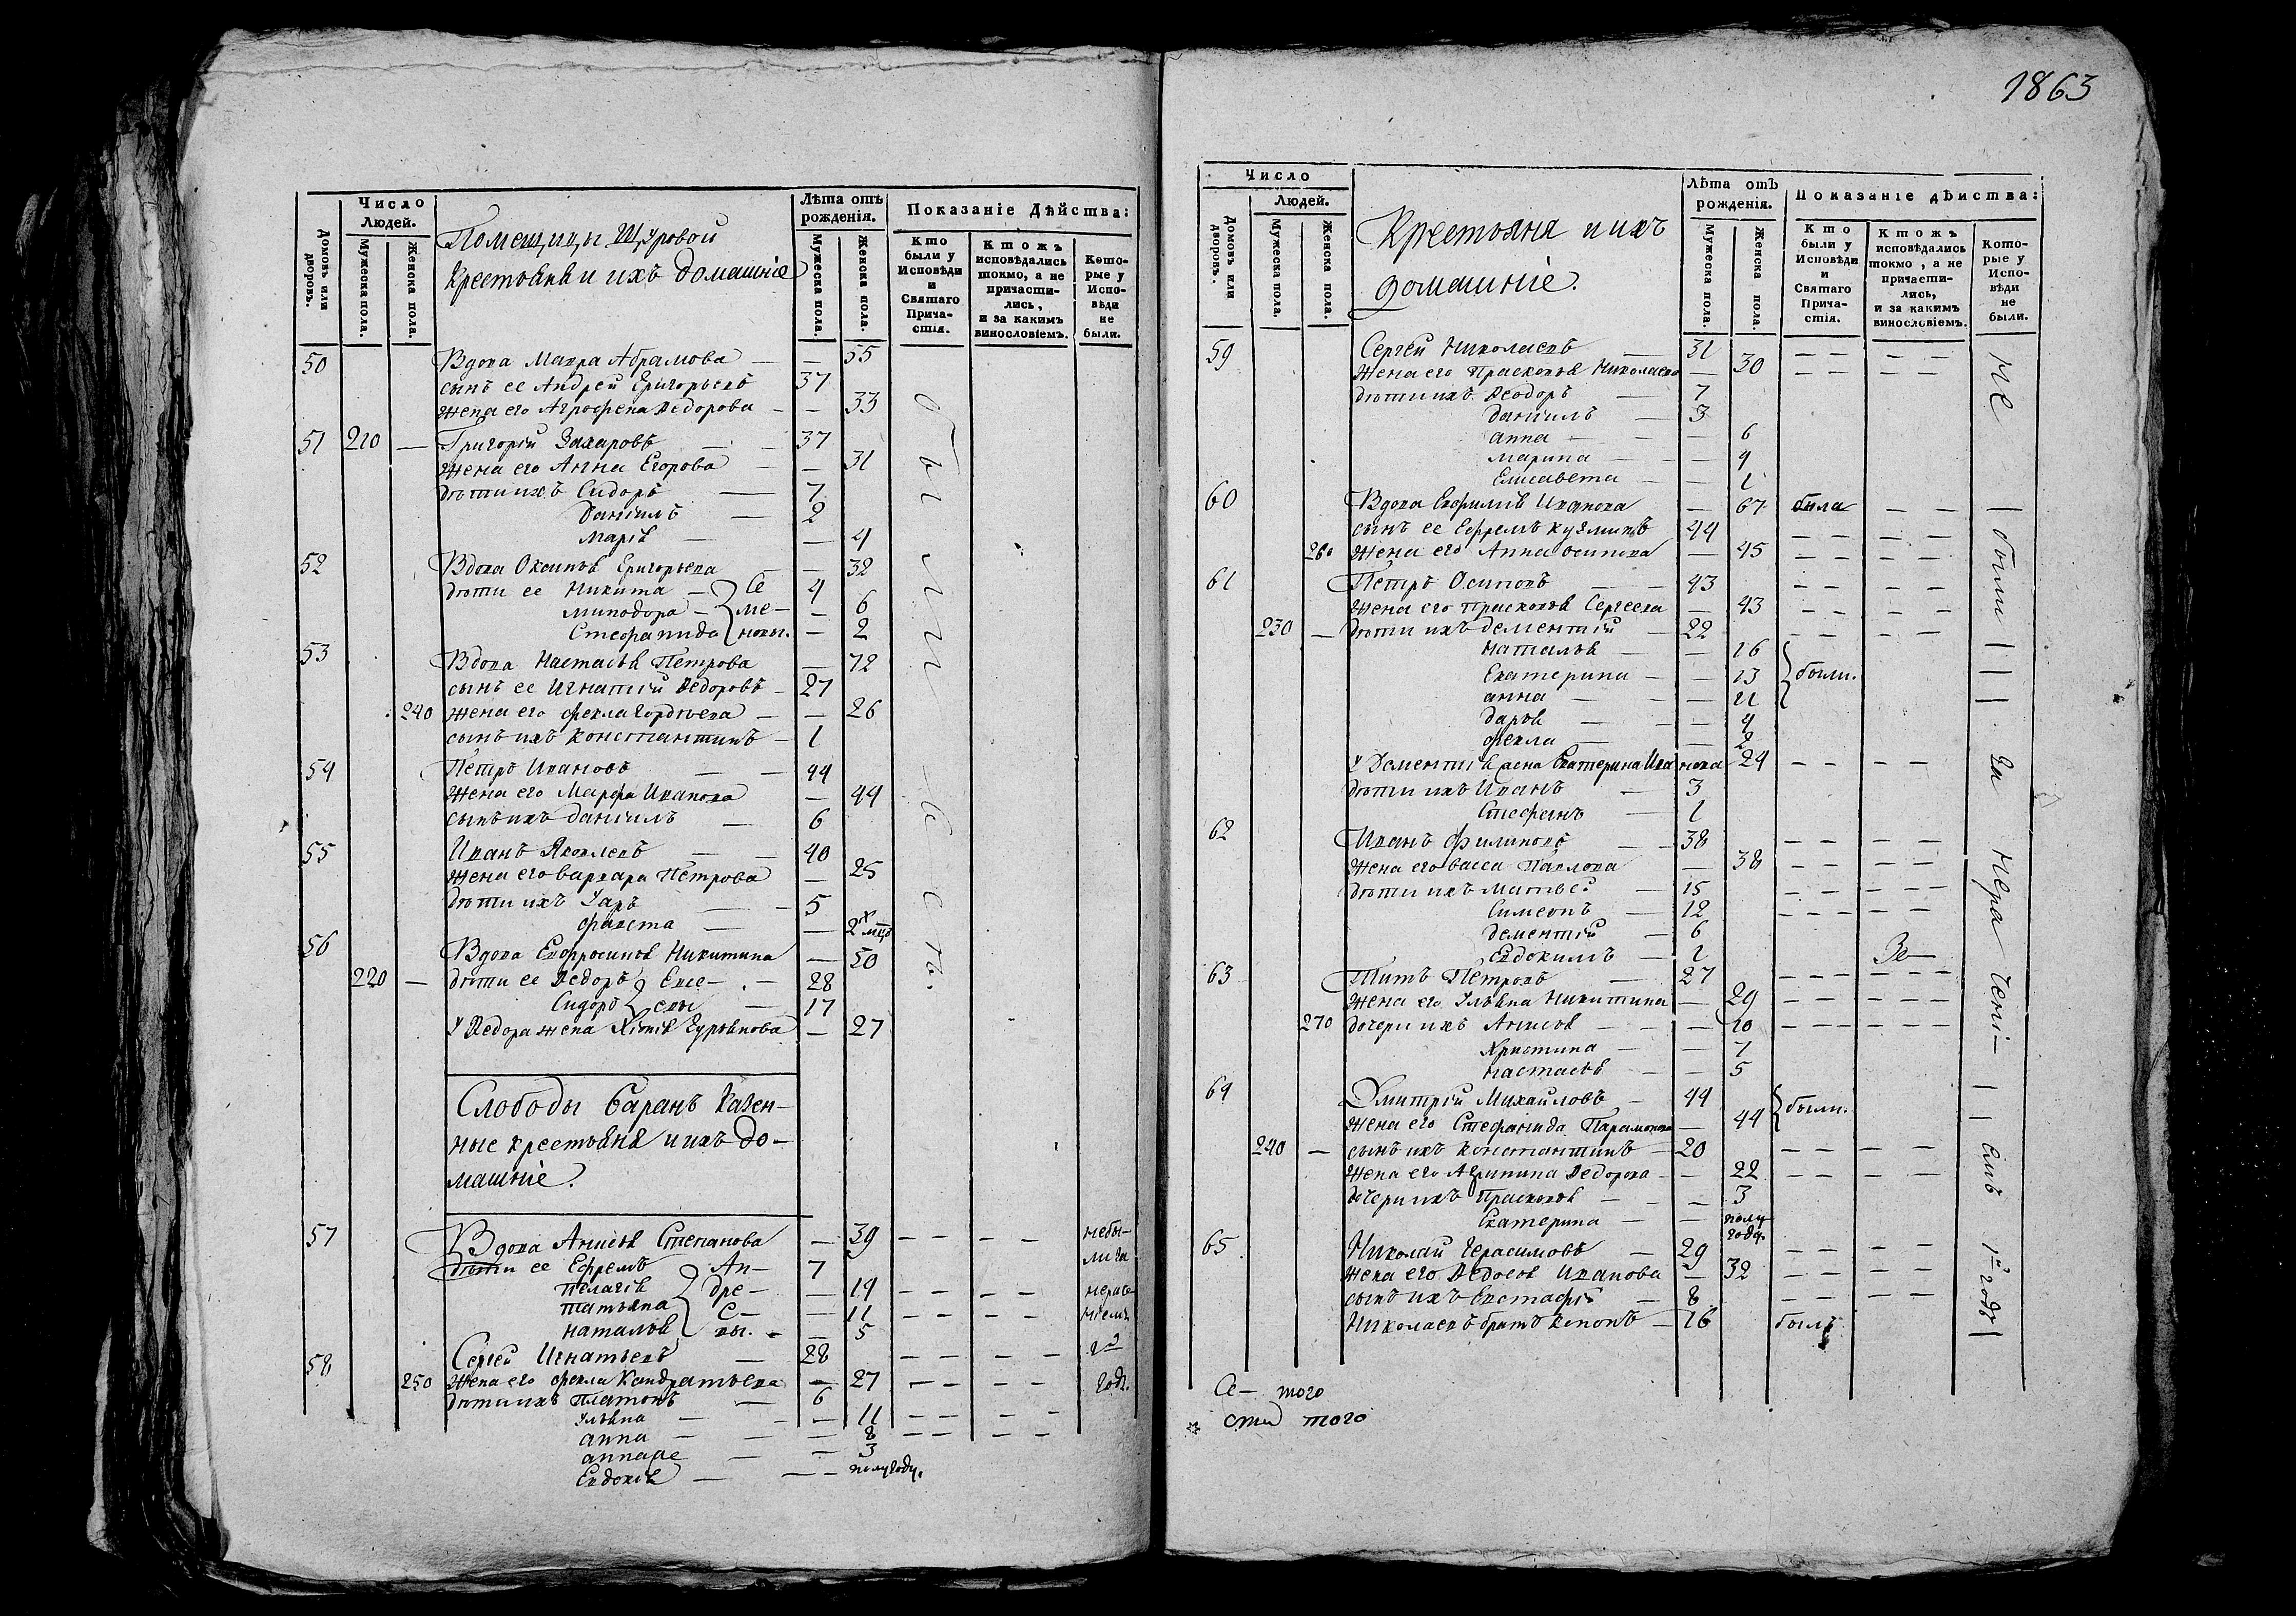 1863
Число
Людей.
Домовъ или дворовъ.
Мужеска пола.
Женска пола.
Помещицы Щуровой
Крестьяня и ихъ домашніе
Лѣта отъ рожденія.
Мужеска пола.
Женска пола.
Показаніе Дѣйства:
Кто были у Исповѣди и Святаго Причастія.
Ктожъ исповѣдались токмо, а не причастились, и за какимъ винословіемъ.
Которые у Исповѣди не были.
50 Вдова Мавра Абрамова — — 55
сынъ ее Андрей Григорьевъ 37
жена его Агрофена Ѳедорова — — 33
51 210 — Григорій Захаровъ — — 37
жена его Анна Егорова — — 31
дѣти ихъ Сидоръ — 7
Даніилъ — 2
Марія — — 4
52 Вдова Оксинья Григорьева — 32
дѣти ее Никита — Се 4
Минодора — ме— — 6
Стефанида новы. — 2
53 Вдова Настасья Петрова — 72
сынъ ее Игнатій Ѳедоровъ — 27
240 жена его Фекла Гордѣева — — 26
сынъ ихъ Константинъ — 1
54 Петръ Ивановъ — — 44
жена его Марфа Иванова — 44
сынъ ихъ Даніилъ — 6
55 Иванъ Яковлевъ — — 40
жена его Варвара Петрова — 25
дѣти ихъ Уаръ — — 5
Фавста — — 2х мцъ
56 Вдова Евфросинья Никитина — 50
220 — дѣти ее Ѳедоръ Евсе— — 28
Сидоръ евы — 17
У Ѳедора жена Хіонія Гурьянова — 27
были всѣ.
Слободы Баранъ Казен-
ные крестьяня и ихъ до-
машніе.
57 Вдова Анисья Степанова — 39 — — — — небы-
дѣти ее Ефремъ Ан— 7 ли за
Пелагія дре— — 14 — — — — нераче
Татьяна е— — 11 — — — — ніемъ
Наталья вы. — — 5
58 Сергей Игнатьевъ — 28 — — — —
250 жена его Фекла Кондратьева — 27 — — — — годъ.
дѣти ихъ Платонъ — 6
Ульяна — — — 11 — — — —
Анна — — — 8 — — — —
Анна — — 3
Евдокія — — — полугоду.
Число
Людей.
Домовъ или дворовъ.
Мужеска пола.
Женска пола.
Крестьяня и ихъ
домашніе.
Лѣта отъ рожденія.
Мужеска пола.
Женска пола.
Показаніе дѣйства:
Кто были у Исповѣди и Святаго Причастія.
Ктожъ исповѣдались токмо, а не причастились, и за какимъ винословіемъ.
Которые у Исповѣди не были.
59 Сергей Николаевъ — 31 — — — —
жена его Прасковья Николаева — 30 — — — —
дѣти ихъ Ѳеодоръ — 7
Даніилъ — 3
Анна — — — 6
Марина — — — 4
Елисавета — — 1
60 Вдова Евфимія Иванова — 67 была — —
сынъ ее Ефремъ Кузминъ 44 — — — —
260 жена его Анна Осипова — 45 — — — —
61 Петръ Осиповъ — — 43 — — — —
жена его Прасковья Сергеева — 43 — — — —
230 — дѣти ихъ Дементій — 22 — — — —
Наталья — — 16
Екатерина — — 13 были.
Анна — — — 11
Дарья — — — 4
Фекла — — 2
У Дементія жена Екатерина Ивановна 24 — — — —
дѣти ихъ Иванъ — 3
Стефанъ — 1
62 Иванъ Филиповъ — — 38 — — — —
жена его Васса Павлова — 38 — — — —
дѣти ихъ Матвей — 15 — — — —
Симеонъ — 12 — — — —
Дементій — 6
Евдокимъ — 2
63 Титъ Петровъ — 27 — — — —
жена его Ульяна Никитина — 29 — — — —
270 дочери ихъ Анисья — — — 10 — — — —
Христина — — 7
Настасья — — 5
64 Дмитрій Михайловъ — 44 были.
жена его Стефанида Парамонова — 44
240 — сынъ ихъ Константинъ — 20 — — — —
жена его Акулина Ѳедорова — — 22 — — — —
дочери ихъ Прасковья — — 3
Екатерина — — полугоду.
65 Николай Герасимовъ — 29 — — — —
жена его Ѳедосья Иванова — 32 — — — —
сынъ ихъ Евстафій — 8 — — — —
Николаевъ братъ Кононъ — 16 былъ
не были за нераченіемъ 1й годъ
того
того